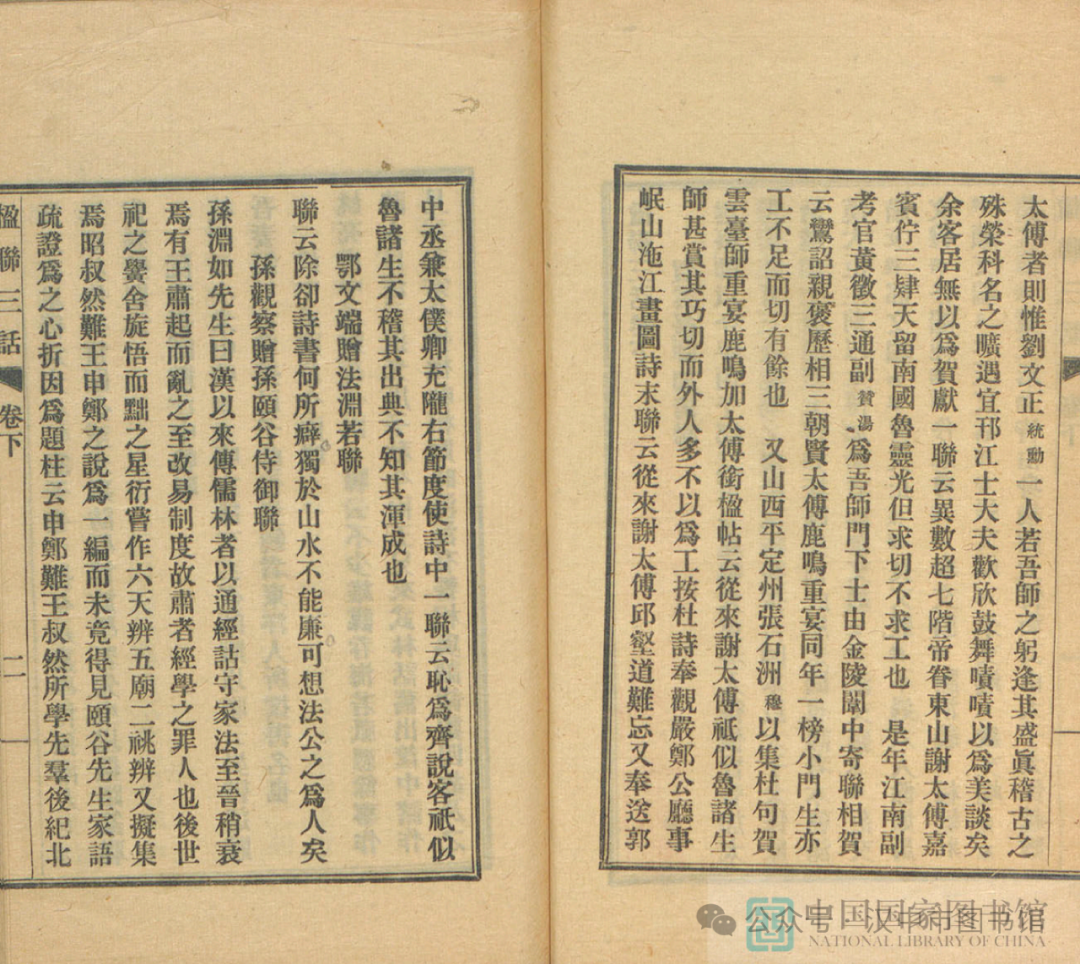 太傅者則惟劉文正統勳一人若吾師之躬逢其盛眞稽古之
殊榮科名之曠遇宜刊江士大夫歡欣鼓舞嘖嘖以爲美談矣
余客居無以爲賀獻一聯云異數超七階帝眷東山謝太傅嘉
賓佇三肄天留南國魯靈光但求切不求工也 是年江南副
考官黃徵三通副贊湯爲吾師門下士由金陵闈中寄聯相賀
云鸞詔親褒歷相三朝賢太傅鹿鳴重宴同年一榜小門生亦
工不足而切有餘也 又山西平定州張石洲穆以集杜句賀
雲臺師重宴鹿鳴加太傅銜楹帖云從來謝太傅祗似魯諸生
師甚賞其巧切而外人多不以爲工按杜詩奉觀嚴鄭公廳事
岷山沲江畫圖詩末聯云從來謝太傅邱壑道難忘又奉送郭
中丞兼太僕卿充隴右節度使詩中一聯云恥爲齊說客祇似
魯諸生不稽其出典不知其渾成也
鄂文端贈法淵若聯
聯云除卻詩書何所癖獨於山水不能廉可想法公之爲人矣
孫觀察贈孫頤谷侍御聯
孫淵如先生曰漢以來傳儒林者以通經詁守家法至晉稍衰
焉有王肅起而亂之至改易制度故肅者經學之罪人也後世
祀之黌舍旋悟而黜之星衍嘗作六天辨五廟二祧辨又擬集
馬昭叔然難王申鄭之說爲一編而未竟得見頤谷先生家語
疏證爲之心折因爲題柱云申鄭難王叔然所學先羣後紀北
楹聯三話 卷下 二
中国国家图书馆
NATIONAL LIBRARY OF CHINA
公众号·汉中市图书馆